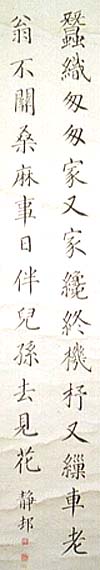 蠶織匆匆家又家纔終機杼又繅車老
翁不關桑麻事日伴兒孫去見花
静邦